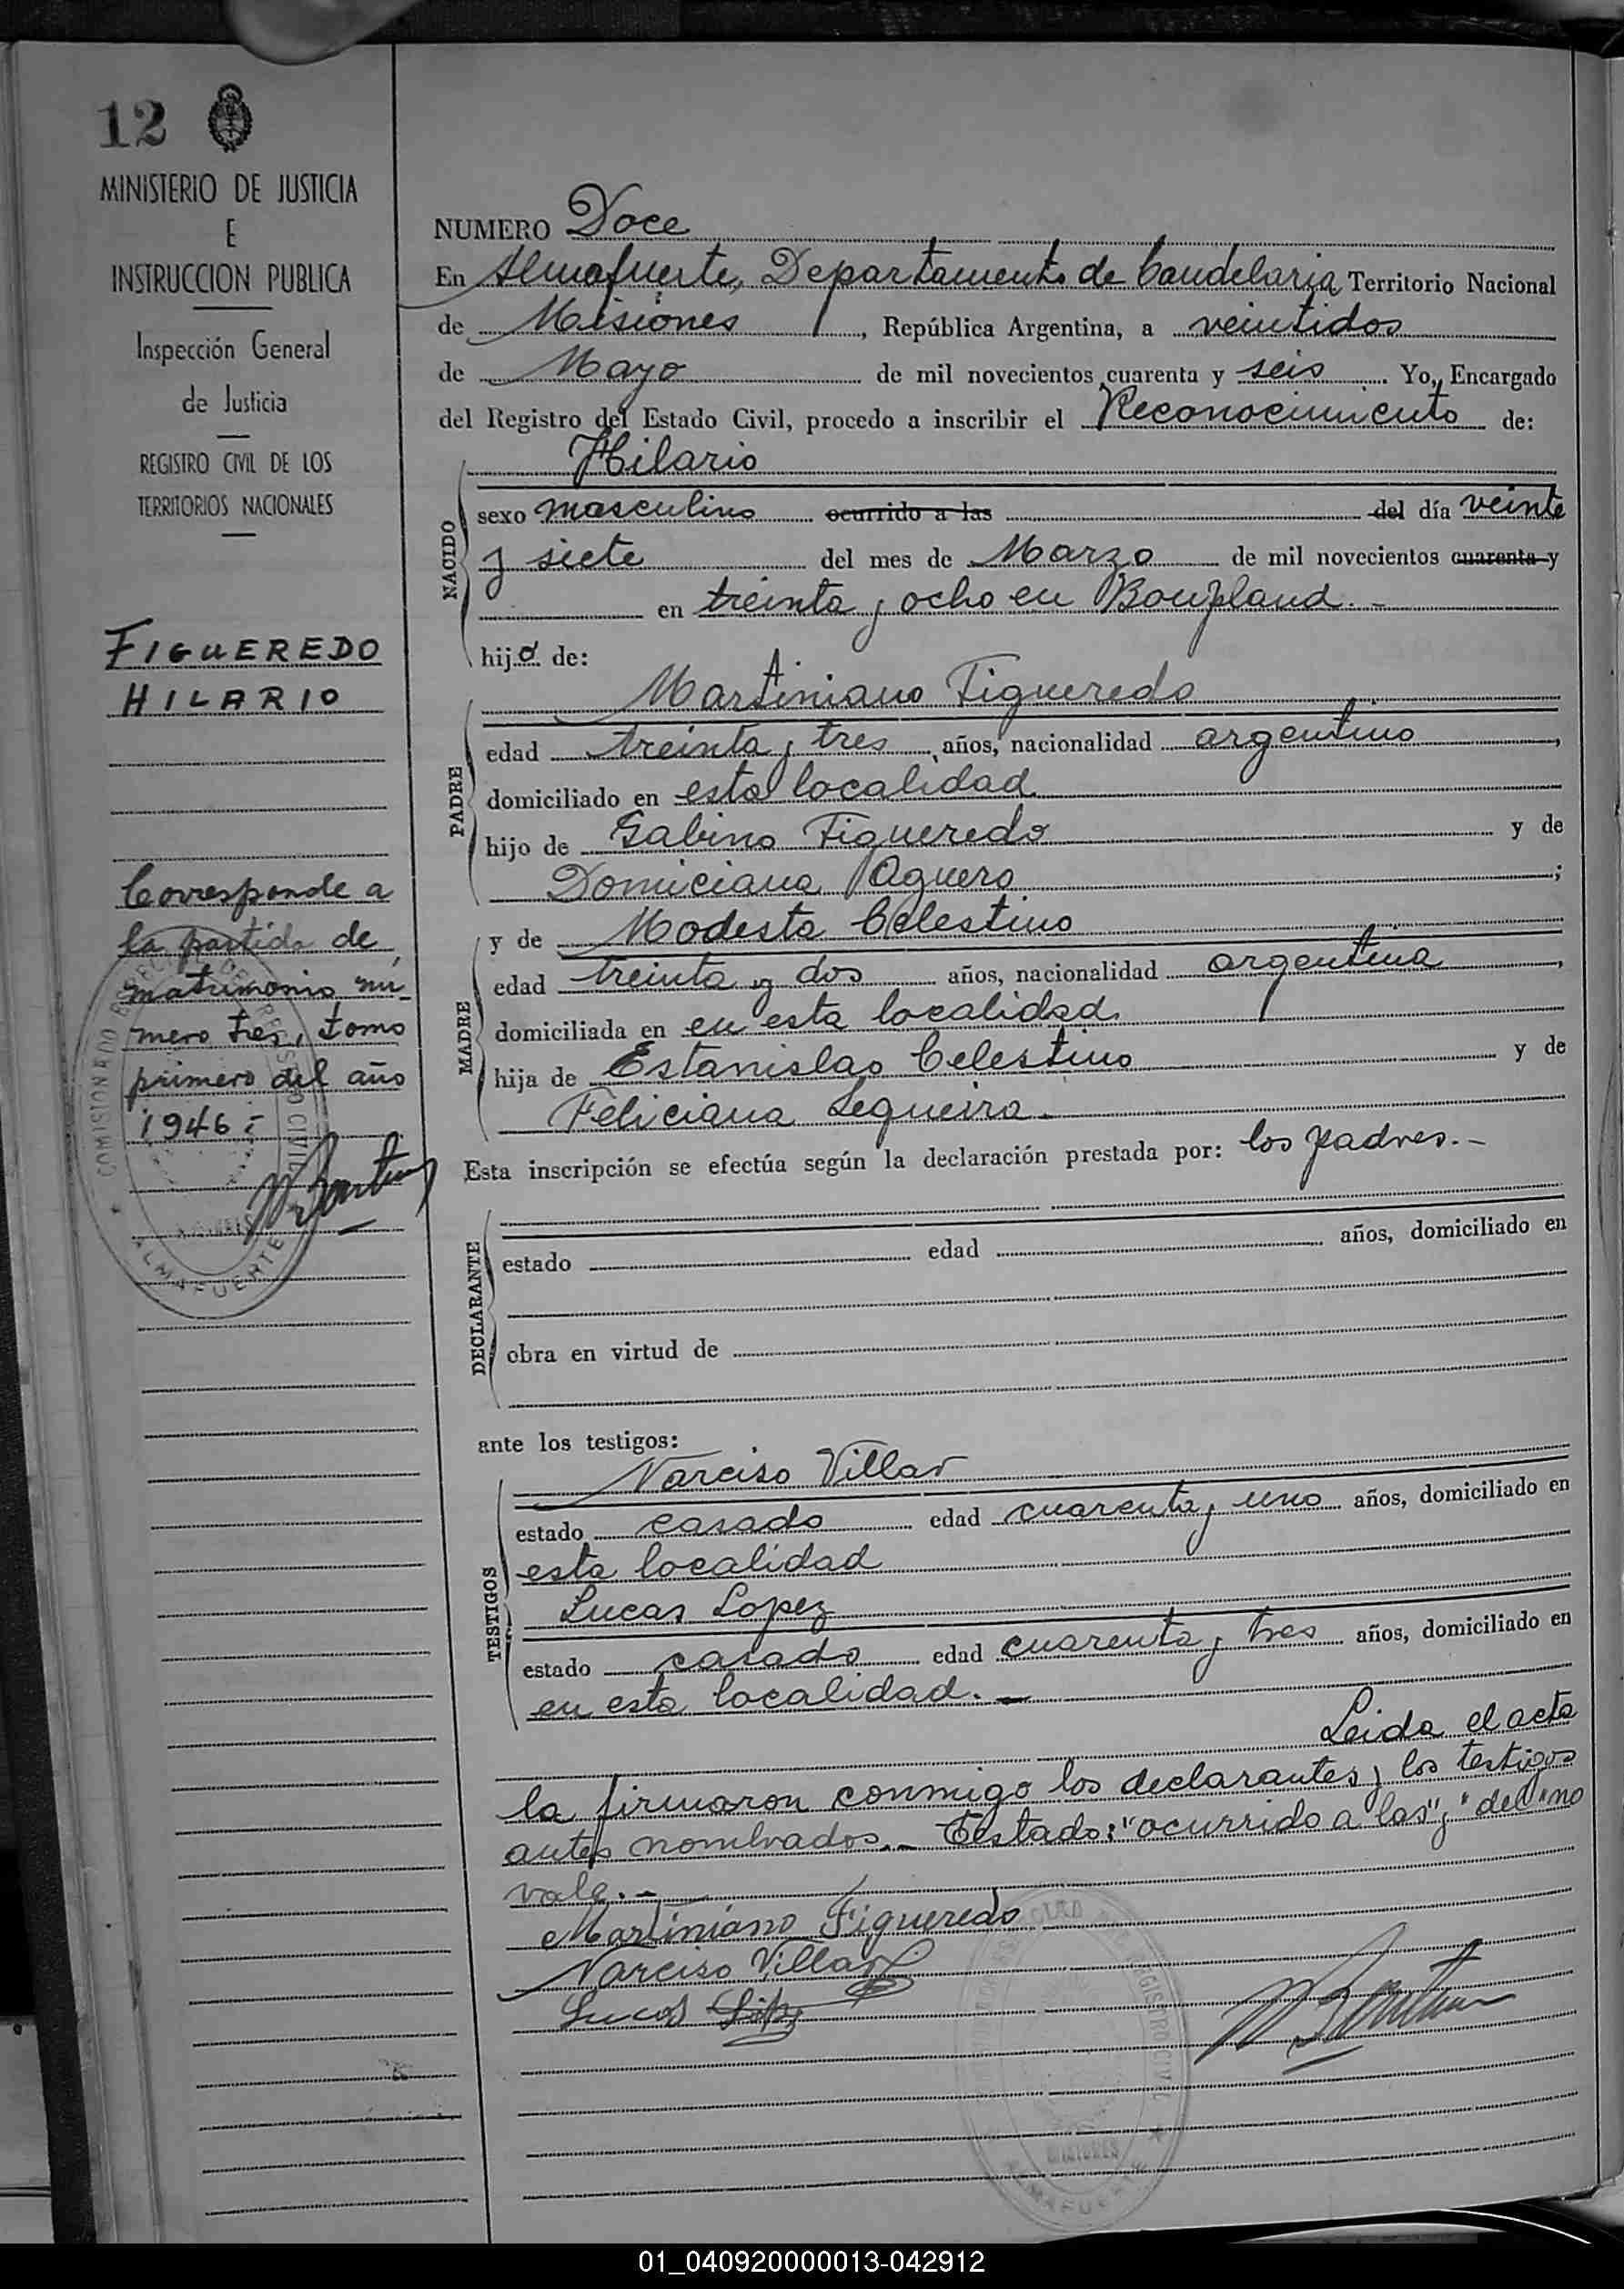 12
MINISTERIO DE JUSTICIA
E
INSTRUCCION PUBLICA
Inspección General
de Justicia
REGISTRO CIVIL DE LOS
TERRITORIOS NACIONALES
FIGUEREDO
HILARIO
Corresponde a
la partida de
matrimonio nú-
mero tres, tomo
primero del año
1946.-
COMISIONADO REGISTRO CIVIL
ALMAFUERTE
NUMERO Doce
En Almafuerte, Departamento de Candelaria Territorio Nacional
de Misiones, República Argentina, a veintidos
de Mayo de mil novecientos cuarenta y seis. Yo, Encargado
del Registro del Estado Civil, procedo a inscribir el Reconocimiento de:
Hilario
NACIDO
sexo masculino ocurrido a las del día veinte
y siete del mes de Marzo de mil novecientos cuarenta y
en treinta y ocho en Bonpland.-
hijo de:
Martiniano Figueredo
PADRE
edad treinta y tres años, nacionalidad argentino,
domiciliado en esta localidad
hijo de Gabino Figueredo y de
Domiciana Aguero;
y de Modesta Celestino
MADRE
edad treinta y dos años, nacionalidad argentina,
domiciliada en en esta localidad.
hija de Estanislao Celestino y de
Feliciana Sequeira.-
Esta inscripción se efectúa según la declaración prestada por: los padres.-
DECLARANTE
estado edad años, domiciliado en
obra en virtud de
ante los testigos:
Narciso Villar
TESTIGOS
estado casado edad cuarenta y uno años, domiciliado en
esta localidad
Lucas Lopez
estado casado edad cuarenta y tres años, domiciliado en
en esta localidad.-
Leida el acta
la firmaron conmigo los declarantes y los testigos
antes nombrados.- Testado: "ocurrido a las" y "del" no
vale.-
Martiniano Figueredo
Narciso Villar
Lucas López
REGISTRO CIVIL
MISIONES
ALMAFUERTE
01_040920000013-042912